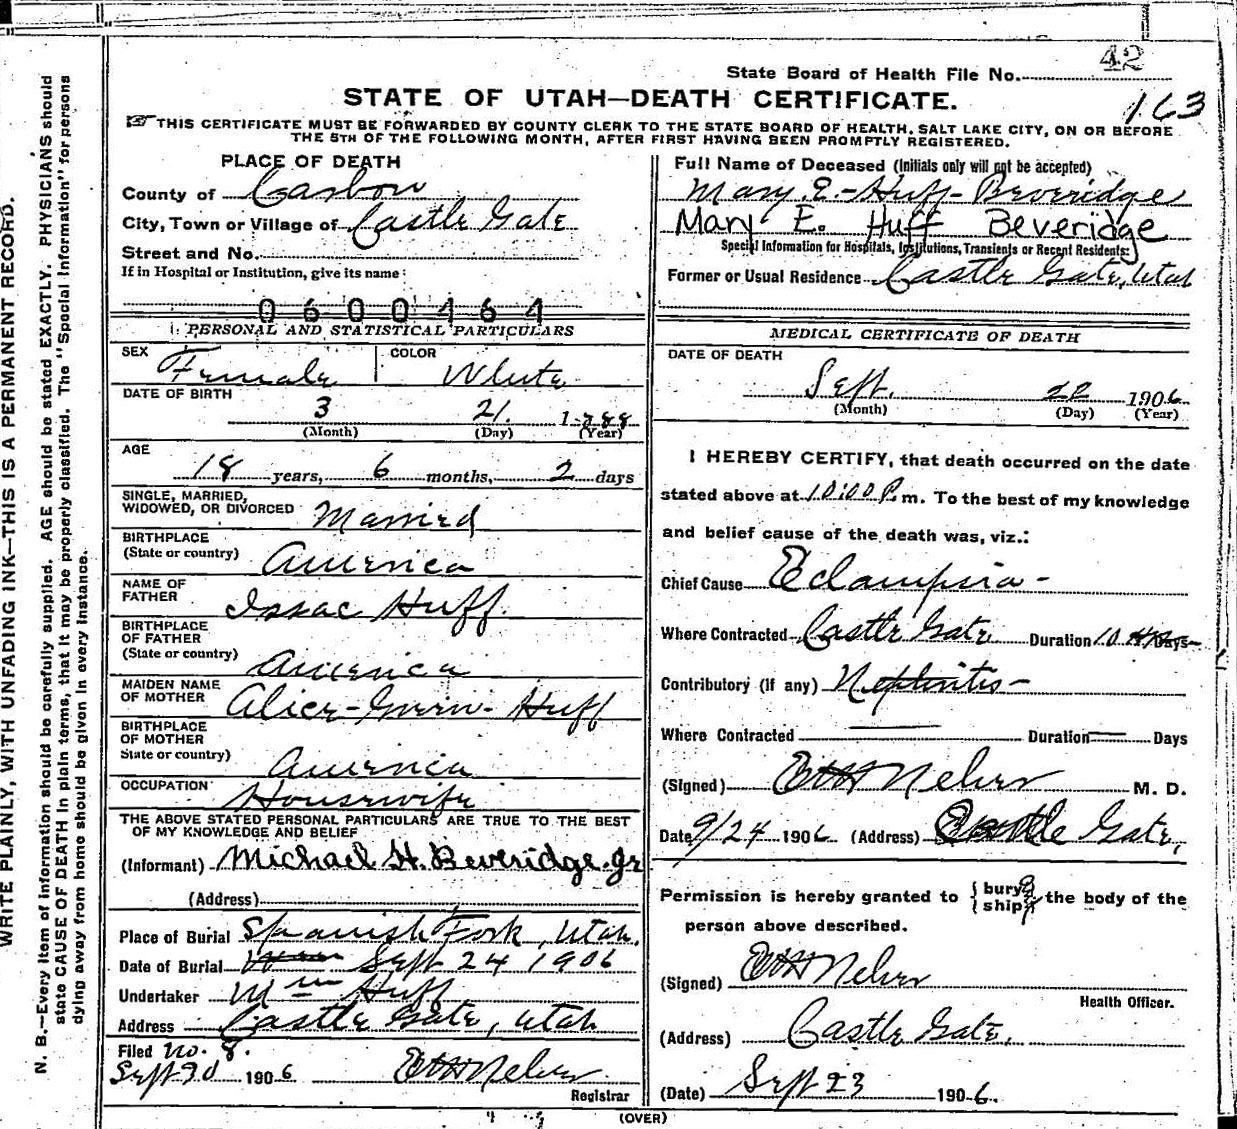 WRITE PLAINLY, WITH UNFADING INK—THIS IS A PERMANENT RECORD.
N. B.—Every item of information should be carefully supplied. AGE should be stated EXACTLY. PHYSICIANS should
state CAUSE OF DEATH in plain terms, that it may be properly classified. The "Special Information" for persons
dying away from home should be given in every instance.
State Board of Health File No. 42
163
STATE OF UTAH—DEATH CERTIFICATE.
THIS CERTIFICATE MUST BE FORWARDED BY COUNTY CLERK TO THE STATE BOARD OF HEALTH, SALT LAKE CITY, ON OR BEFORE
THE 5TH OF THE FOLLOWING MONTH, AFTER FIRST HAVING BEEN PROMPTLY REGISTERED.
PLACE OF DEATH
County of Carbon
City, Town or Village of Castle Gate
Street and No.
If in Hospital or Institution, give its name:
0600464
PERSONAL AND STATISTICAL PARTICULARS
SEX Female COLOR White
DATE OF BIRTH
3 21. 1888
(Month) (Day) (Year)
AGE
18 years, 6 months, 2 days
SINGLE, MARRIED,
WIDOWED, OR DIVORCED Married
BIRTHPLACE
(State or country) America
NAME OF
FATHER Issac Huff.
BIRTHPLACE
OF FATHER
(State or country) America
MAIDEN NAME
OF MOTHER Alice Huff
BIRTHPLACE
OF MOTHER
State or country) America
OCCUPATION Housewife
THE ABOVE STATED PERSONAL PARTICULARS ARE TRUE TO THE BEST
OF MY KNOWLEDGE AND BELIEF
(Informant) Michael H. Beveridge. Jr
(Address)
Place of Burial Spanish Fork, Utah.
Date of Burial Sept 24 1906
Undertaker Wm Huff
Address Castle Gate, Utah
Filed No. 8.
Sept 1906
Registrar
Full Name of Deceased (Initials only will not be accepted)
Mary. E.- Huff- Beveridge
Mary E. Huff Beveridge
Special Information for Hospitals, Institutions, Transients or Recent Residents:
Former or Usual Residence Castle Gate, Utah
MEDICAL CERTIFICATE OF DEATH
DATE OF DEATH
Sept. 22 1906
(Month) (Day) (Year)
I HEREBY CERTIFY, that death occurred on the date
stated above at 10:00 P. m. To the best of my knowledge
and belief cause of the death was, viz.:
Chief Cause Eclampsia-
Where Contracted Castle Gate Duration 10 Days
Contributory (if any) Nephritis-
Where Contracted Duration Days
(Signed) M. D.
Date 9/24 1906 (Address) Castle Gate,
Permission is hereby granted to {bury ship} the body of the
person above described.
(Signed)
Health Officer.
(Address) Castle Gate.
(Date) Sept 23 1906.
(OVER)